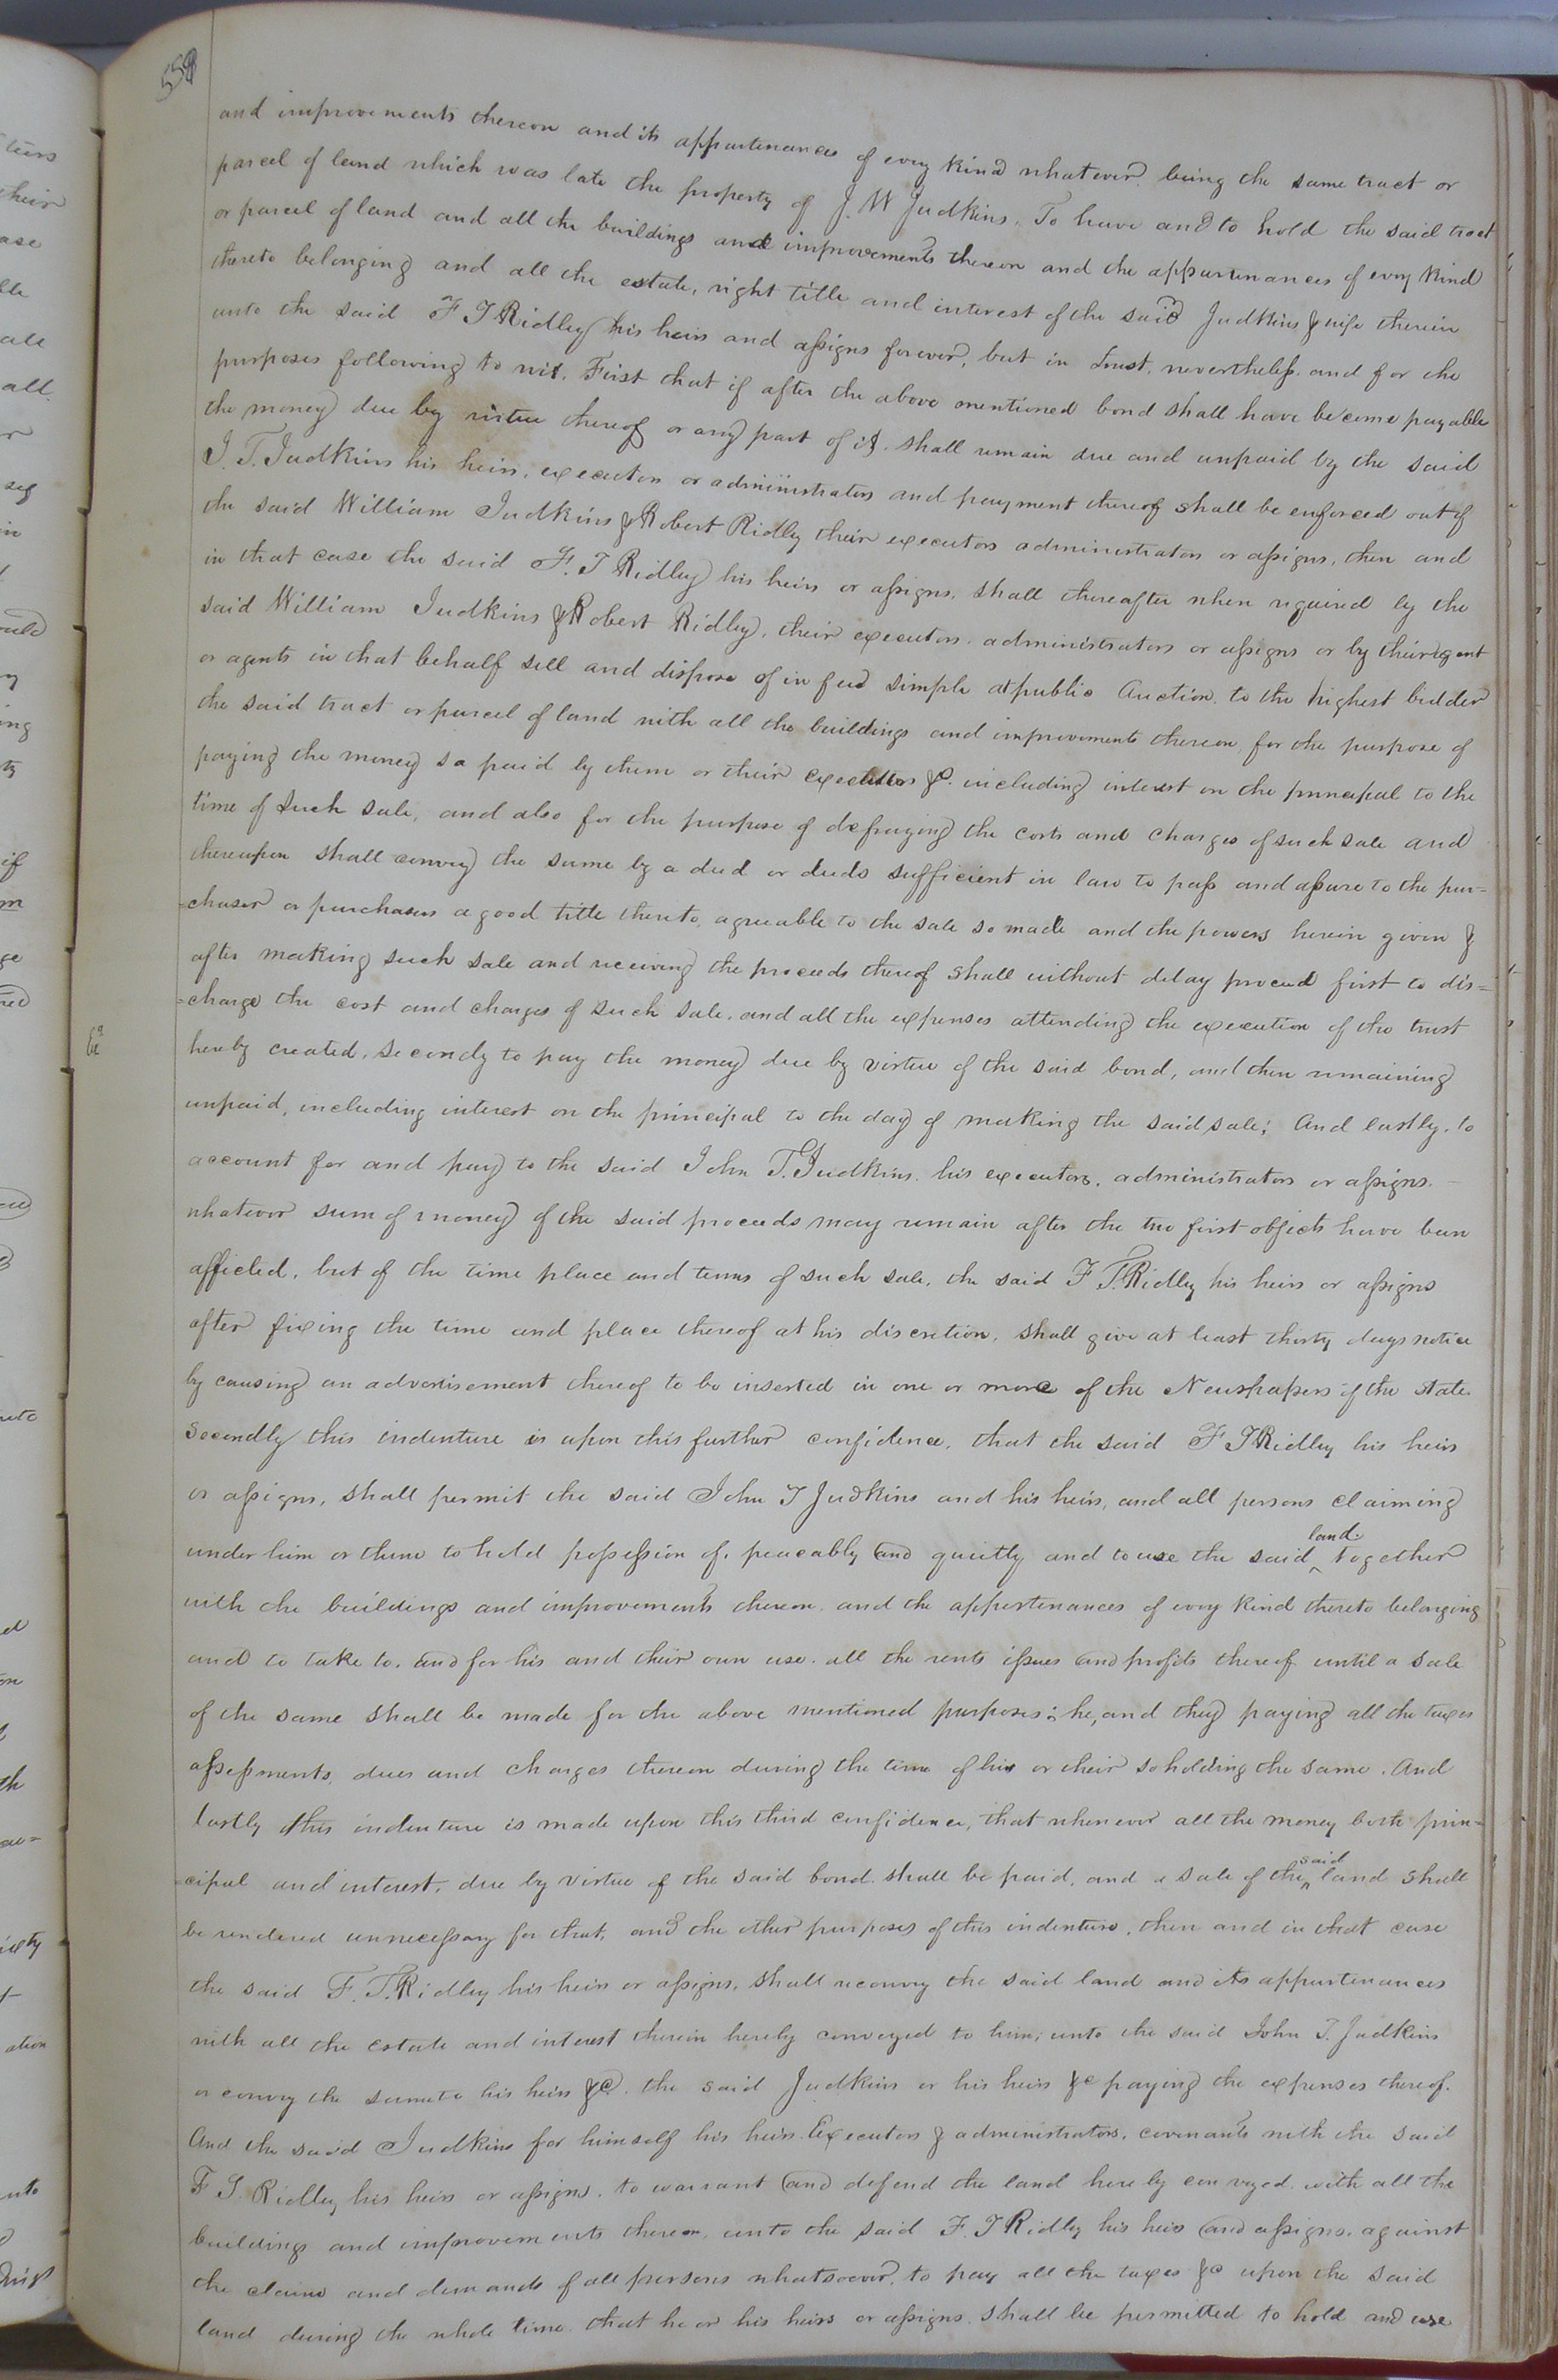 559
and improvements thereon and its appurtenances of every kind whatever being the same tract or
parcel of land which was late the property of J. W Judkins. To have and to hold the said tract
or parcel of land and all the buildings and improvements thereon and the appurtenances of every kind
thereto belonging and all the estate, right title and interest of the said Judkins & wife therein
unto the said F T Ridley his heirs and assigns forever, but in trust, nevertheless and for the
purposes following to wit. First that if after the above mentioned bond shall have become payable
the money due by virtue thereof or any part of it shall remain due and unpaid by the said
J. T. Judkins his heirs, executors or administrators and payment thereof shall be enforced out of
the said William Judkins & Robert Ridley their executors administrators or assigns, then and
in that case the said F. T Ridley his heirs or assigns, shall thereafter when required by the
said William Judkins & Robert Ridley, their executors, administrators or assigns or by their agent
or agents in that behalf sell and dispose of in fee simple at public Auction, to the highest bidder
the said tract or parcel of land with all the buildings and improvements thereon, for the purpose of
paying the money so paid by them or their executors &c. including interest on the principal to the
time of such sale, and also for the purpose of defraying the costs and charges of such sale and
thereupon shall convey the same by a deed or deeds sufficient in law to pass and assure to the pur=
=chaser or purchasers a good title thereto, agreeable to the sale so made and the powers herein given &
after making such sale and receiving the proceeds thereof shall without delay proceed first to dis=
=charge the cost and charges of such sale, and all the expenses attending the execution of the trust
hereby created, secondly to pay the money due by virtue of the said bond, and then remaining
unpaid, including interest on the principal to the day of making the said sale; And lastly, to
account for and pay to the said John T. Judkins, his executors, administrators or assigns.
whatever sum of money of the said proceeds may remain after the two first objects have been
affected, but of the time place and terms of such sale, the said F T. Ridley his heirs or assigns
after fixing the time and place thereof at his discretion, shall give at least thirty days notice
by causing an advertisement thereof to be inserted in one or more of the Newspapers of the state.
Secondly this indenture is upon this further confidence, that the said F T Ridley his heirs
or assigns, shall permit the said John T Judkins and his heirs, and all persons claiming
under him or them to hold possession of, peaceably and quietly and to use the said land. together
with the buildings and improvements thereon and the appertenances of every kind thereto belonging
and to take to, and for his and their own use, all the rents issues and profits thereof until a sale
of the same shall be made for the above mentioned purposes; he, and they paying all the taxes
assessments, dues and charges thereon during the time of his or their so holding the same. And
lastly this indenture is made upon this third confidence, that whenever all the money both prin=
=cipal and interest, due by virtue of the said bond shall be paid, and a sale of the said land shall
be rendered unnecessary for that, and the other purposes of this indenture, then and in that case
the said F. T. Ridley his heirs or assigns, shall reconvey the said land and its appurtenances
with all the estate and interest therein hereby conveyed to him, unto the said John T. Judkins
or convey the same to his heirs &c. the said Judkins or his heirs &c paying the expenses thereof.
And the said Judkins for himself his heirs Executors & administrators, covenants with the said
F T. Ridley his heirs or assigns, to warrant and defend the land hereby conveyed, with all the
buildings and improvements thereon, unto the said F. T Ridley his heirs and assigns, against
the claims and demands of all persons whatsoever, to pay all the taxes &c upon the said
land during the whole time that he or his heirs or assigns shall be permitted to hold and use